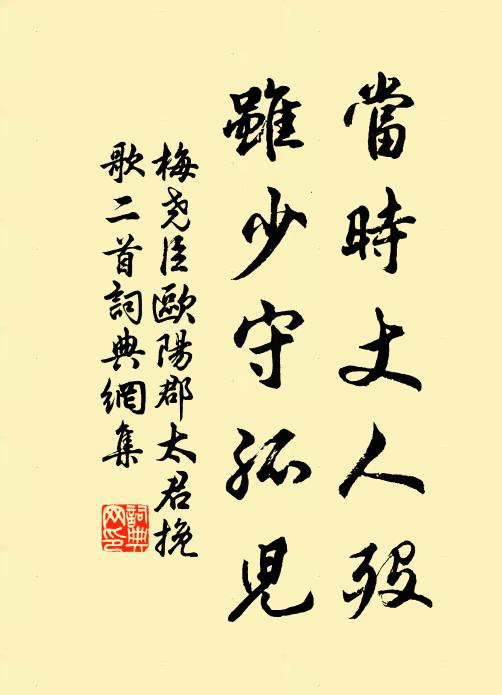 當時丈人歿
雖少守孤児
梅尧臣歐陽郡太君挽
歌二首詞典網集
詞典
网印